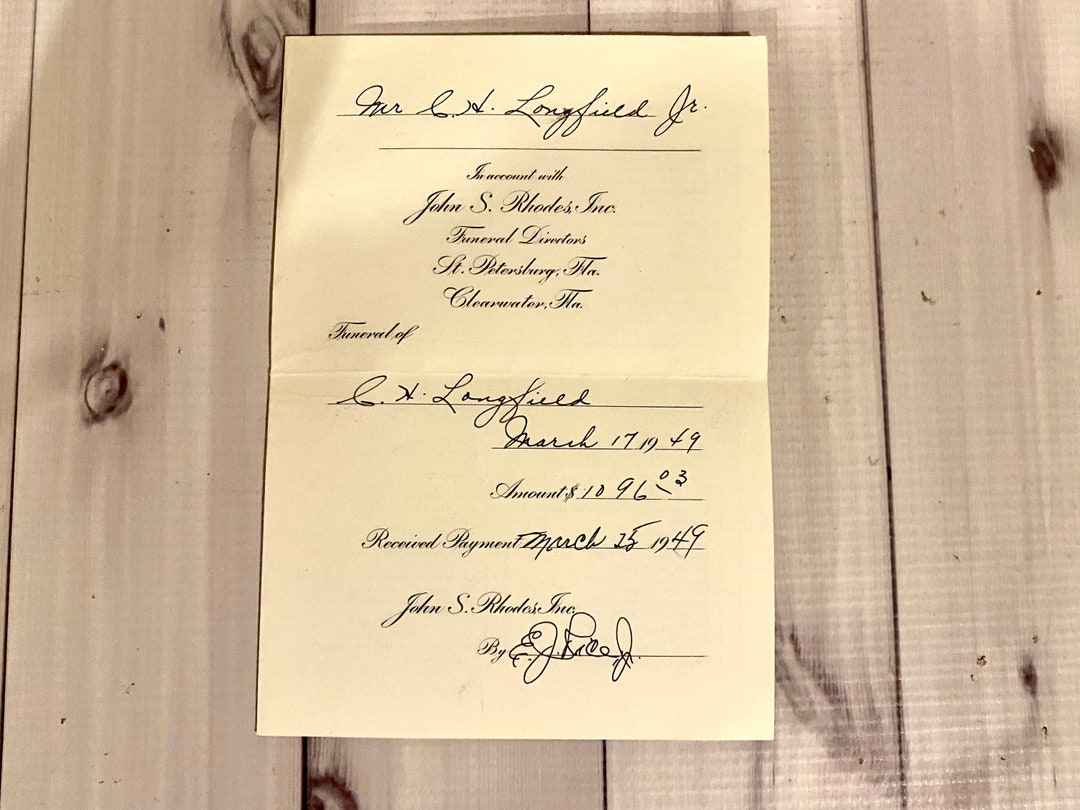 Mr C. H. Longfield Jr.
In account with
John S. Rhodes, Inc.
Funeral Directors
St. Petersburg, Fla.
Clearwater, Fla.
Funeral of
C. H. Longfield
March 17 1949
Amount $ 1096 03
Received Payment March 25 1949
John S. Rhodes Inc.
By E. J. Rice Jr.